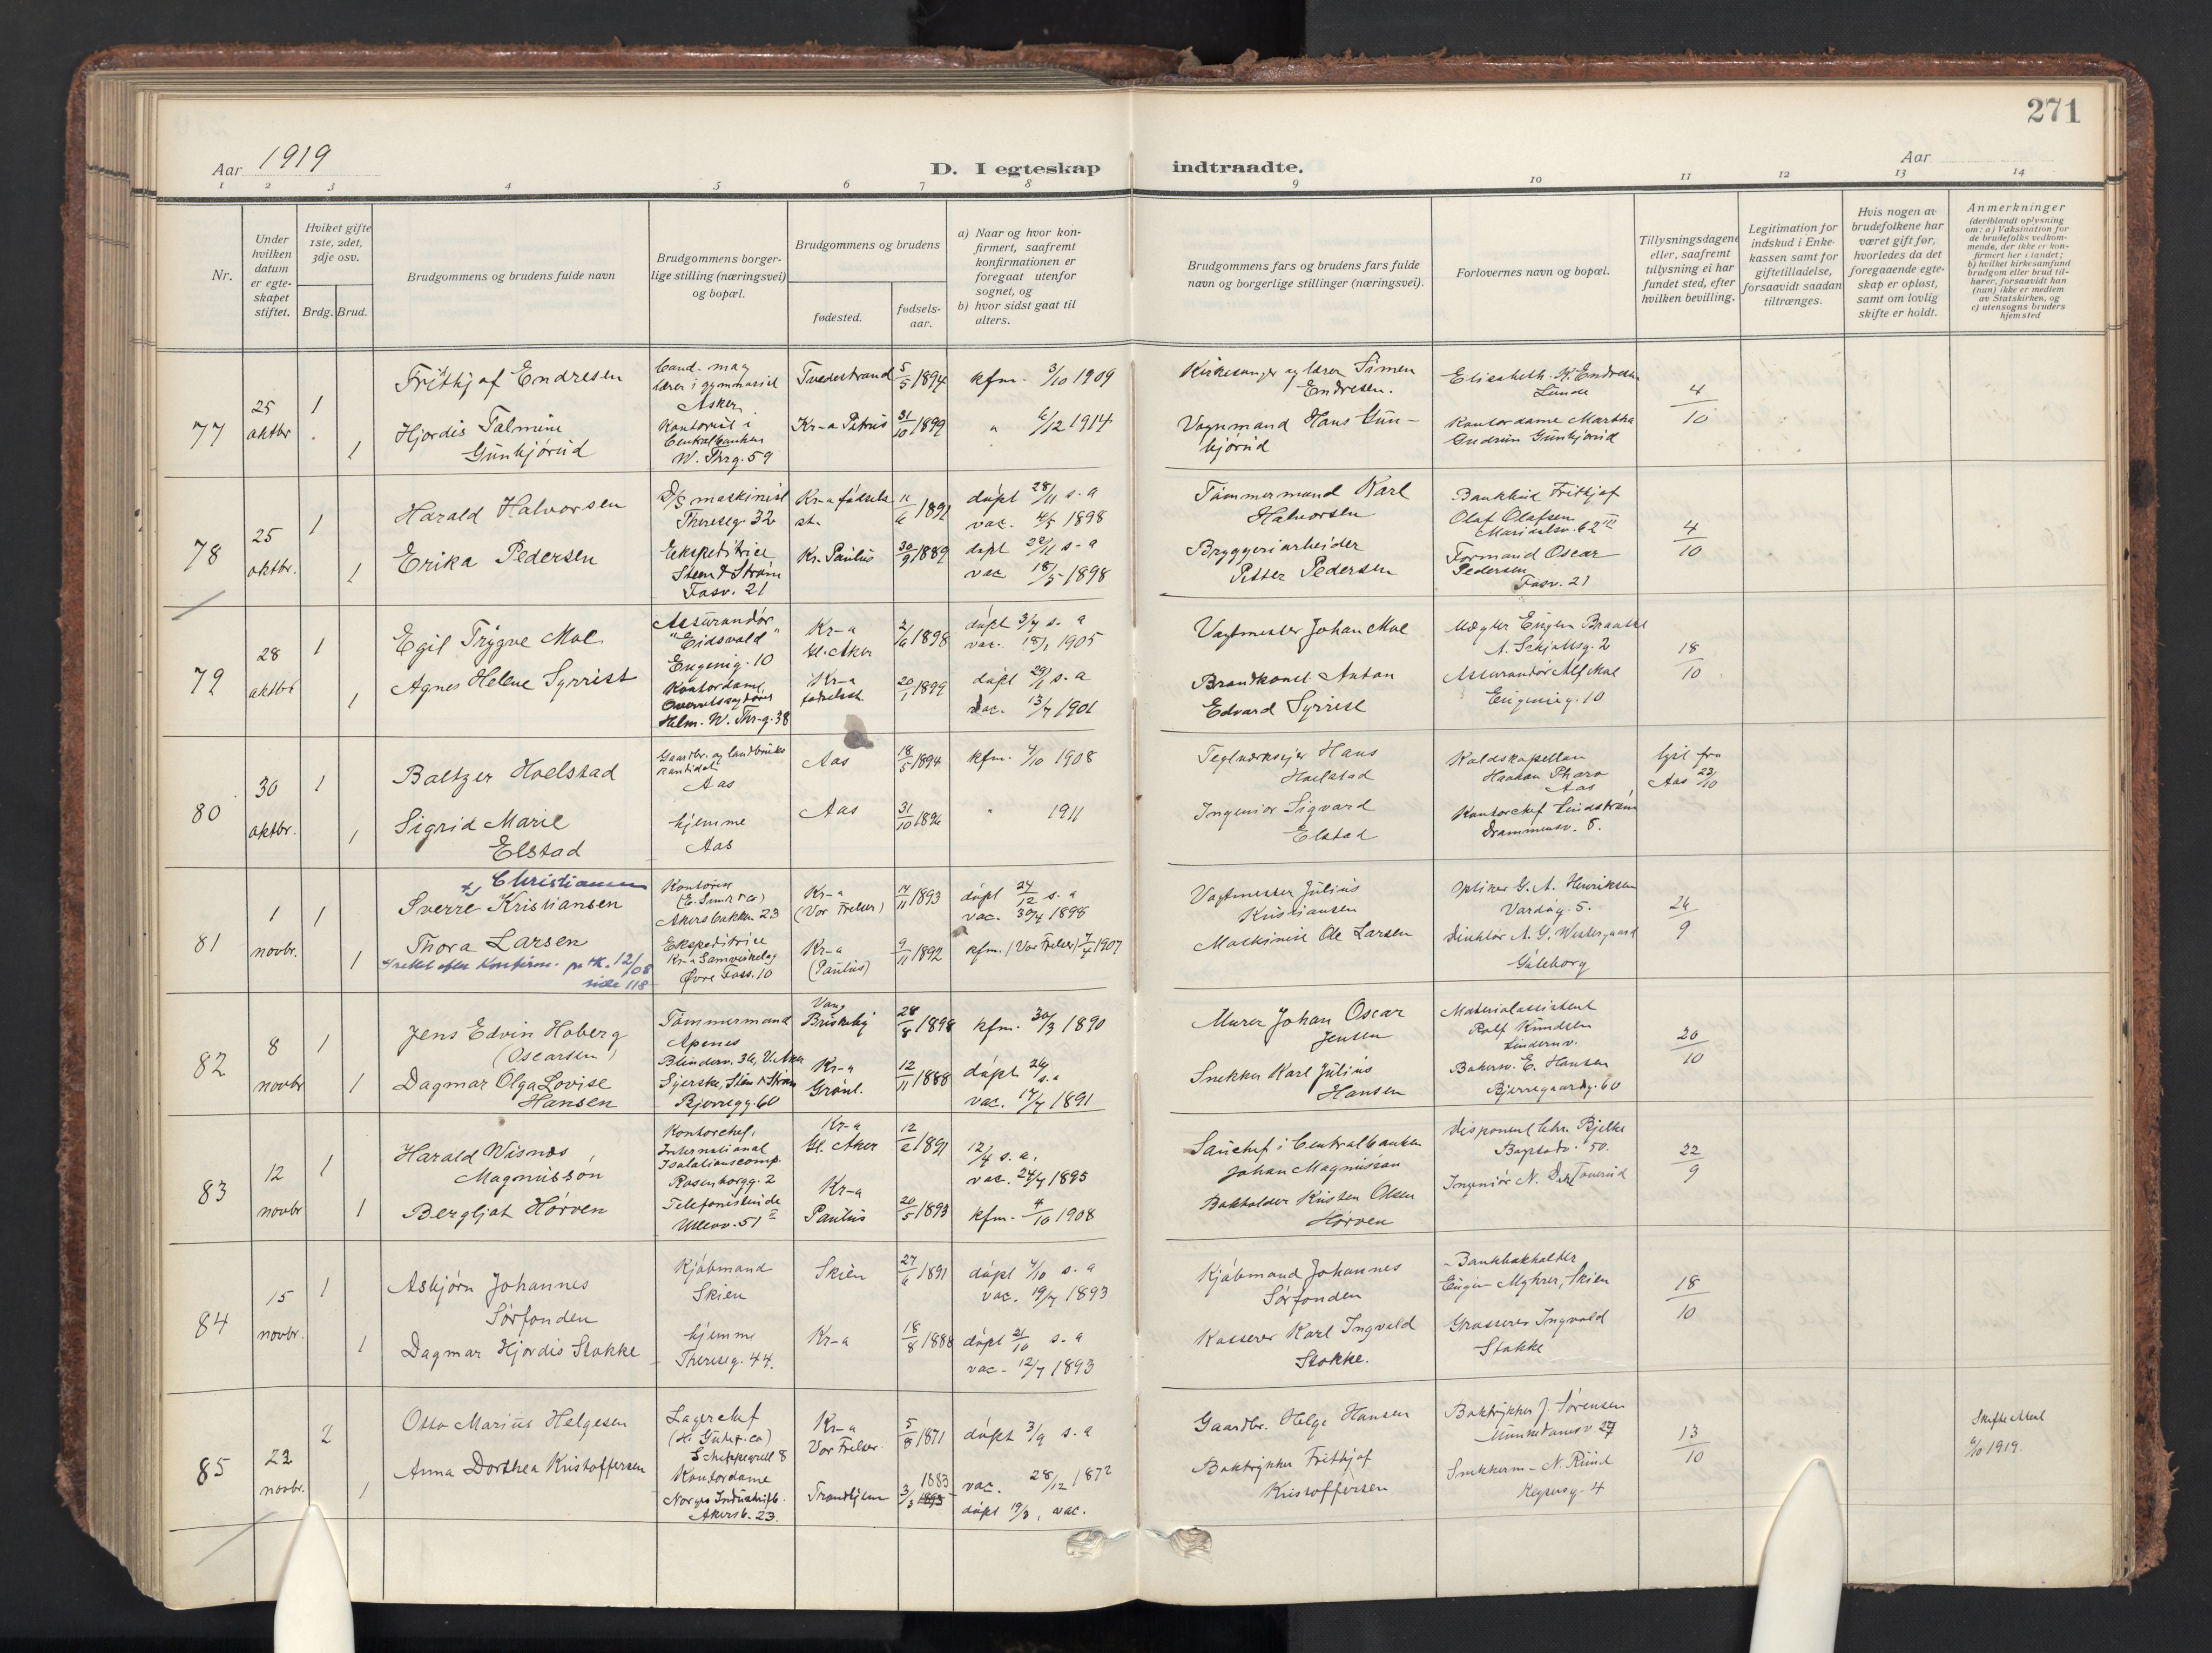 271
Aar 1919
D. I egteskap indtraadte.
Aar
1 2 3 4 5 6 7 8 9 10 11 12 13 14
Nr.
Under
hvilken
datum
er egte-
skapet
stiftet.
Hviket gifte
1ste, 2det,
3dje osv.
Brdg. Brud.
Brudgommens og brudens fulde navn
Brudgommens borger-
lige stilling (næringsvei)
og bopæl.
Brudgommens og brudens
fødested.
fødsels-
aar.
a) Naar og hvor kon-
firmert, saafremt
konfirmationen er
foregaat utenfor
sognet, og
b) hvor sidst gaat til
alters.
Brudgommens fars og brudens fars fulde
navn og borgerlige stillinger (næringsvei).
Forlovernes navn og bopæl.
Tillysningsdagene
eller, saafremt
tillysning ei har
fundet sted, efter
hvilken bevilling.
Legitimation for
indskud i Enke-
kassen samt for
giftetilladelse,
forsaavidt saadan
tiltrænges.
Hvis nogen av
brudefolkene har
været gift før,
hvorledes da det
foregaaende egte-
skap er opløst,
samt om lovlig
skifte er holdt.
Anmerkninger
(deriblandt oplysning
om: a) Vaksination for
de brudefolks vedkom-
mende, der ikke er kon-
firmert her i landet;
b) hvilket kirkesamfund
brudgom eller brud til-
hører, forsaavidt han
(hun) ikke er medlem
av Statskirken, og
c) utensogns bruders
hjemsted
77
25
oktbr
1
1
Frithjof Endresen
Hjordis Talmine
Gunhjørud
Cand. mag
lærer i gymnasiet
Asker
Kontorist i
Centralbanken
W. Thrg. 59
Tvedestrand
Kr-a Petrus
5/5 1894
31/10 1899
kfm. 3/10 1909
" 6/12 1914
Kirkesanger og lærer Simen
Endresen.
Vognmand Hans Gun-
hjørud
Elisabeth. K. Endresen
Lunde
Kontordame Martha
Gudrun Gunhjørud
4/10
78
25
oktbr.
1
1
Harald Halvorsen
Erika Pedersen
D/S maskinist
Thereseg. 32
Ekspeditrice
Steen & Strøm
Fasv. 21
Kr-a fødsels
st.
Kr. Paulus
11/6 1891
30/9 1889
døpt 28/11 s. a
vac. 4/5 1898
døpt 22/11 s. a
vac 18/5 1898
Tømmermand Karl
Halvorsen
Bryggeriarbeider
Petter Pedersen
Bankbud Frithjof
Olaf Olafsen
Maridalsv. 62 III
Formand Oscar
Pedersen
Fasv. 21
4/10
79
28
oktbr
1
1
Egil Trygve Moe
Agnes Helene Syrrist
Assurandør
"Eidsvold"
Eugenig. 10
Kontordame
Helm. W. Thr-g. 38
Kr-a
Gl. Aker
Kr-a
fødselsst.
2/6 1898
20/1 1899
døpt 3/7 s. a
vac. 18/1 1905
døpt 29/1 s. a
vac. 13/7 1901
Vagtmester Johan Moe
Brandkonst. Anton
Edvard Syrrist
Mægler Eugen Braathe
A. Schjøttsg. 2
Assurandør Alf Moe
Eugenieg. 10
18/10
80
30
oktbr.
1
1
Baltzer Hoelstad
Sigrid Marie
Elstad
Gaardbr. og landbruks
kandidat
Aas
hjemme
Aas
Aas
Aas
18/5 1894
31/10 1896
kfm. 4/10 1908
" 1911
Teglverkseier Hans
Hoelstad
Ingeniør Sigvard
Elstad
Kaldskapellan
Haakon Pharo
Aas
Kontorchef Lindstrøm
Drammensv. 8.
lyst fra
Aas 23/10
81
1
novbr.
1
1
Christiansen
Sverre Kristiansen
Thora Larsen
rettet efter Konfirm. pr tk. 12/08
side 118
Kontorist
Akersbakken 23
Ekspeditrice
Kr-a Samvirkelag
Øvre Foss. 10
Kr-a
(Vor Frelser)
Kr-a
(Paulus)
14/11 1893
9/11 1892
døpt 24/12 s. a
vac. 30/4 1898
kfm. (Vor Frelser) 7/4 1907
Vagtmester Julius
Kristiansen
Maskinist Ole Larsen
Optiker G. A. Henriksen
Vardøg. 5.
Direktør A. G. Westergaard
Gøteborg
26/9
82
8
novbr
1
1
Jens Edvin Hoberg
(Oscarsen)
Dagmar Olga Lovise
Hansen
Tømmermand
Apenes
Blindern. 36, V. Aker
Syerske, Steen & Strøm
Bjerregg. 60
Vang
Briskeby
Kr-a
Grønl.
28/8 1898
12/11 1888
kfm. 30/3 1890
døpt 26/ s. a
vac. 17/7 1891
Murer Johan Oscar
Jensen
Snekker Karl Julius
Hansen
Materialassistent
Rolf Knudsen
Lindernv.
Bakerm. E. Hansen
Bjerregaardsg. 60
20/10
83
12
novbr
1
1
Harald Wisnæs
Magnusson
Bergljot Hørven
Kontorchef,
International
Isolationscomp.
Rosenborgg. 2
Telefonistinde
Ullevv. 51 II
Kr-a
Gl. Aker
Kr-a
Paulus
12/2 1891
20/5 1893
12/4 s. a.
vac. 24/7 1895
kfm. 4/10 1908
Sauchef i Centralbanken
Johan Magnusson
Bokholder Kristen Olsen
Hørven
Disponent Chr. Bjelke
Bogstadv. 50.
Ingeniør N. Tonerud
22/9
84
15
novbr.
1
1
Asbjørn Johannes
Sørfonden
Dagmar Hjordis Stokke
Kjøbmand
Skien
hjemme
Thereseg. 44.
Skien
Kr-a
27/6 1891
18/8 1888
døpt 4/10 s. a
vac. 19/7 1893
døpt 21/10 s. a
vac. 12/7 1893
Kjøbmand Johannes
Sørfonden
Kasserer Karl Ingvald
Stokke.
Bankbokholder
Eugen Myhrer, Skien
Grosserer Ingvald
Stokke
18/10
85
22
novbr.
2
1
Otto Marius Helgesen
Anna Dorthea Kristoffersen
Lagerchef
Schøppegrell 8
Kontordame
Norges Industrifb.
Akersb. 23.
Kr-a
Vor Frelser.
Trondhjem
5/8 1871
1883
3/3 1893
døpt 3/9 s. a
vac. 28/12 1872
døpt 19/3, vac.
Gaardbr. Helge Hansen
Boktrykker Frithjof
Kristoffersen
Boktrykker J. Sørensen
Munkedamsv. 27
Snekkerm. N. Ruud
Keysersg. 4
13/10
Skifteattest
6/10 1919.